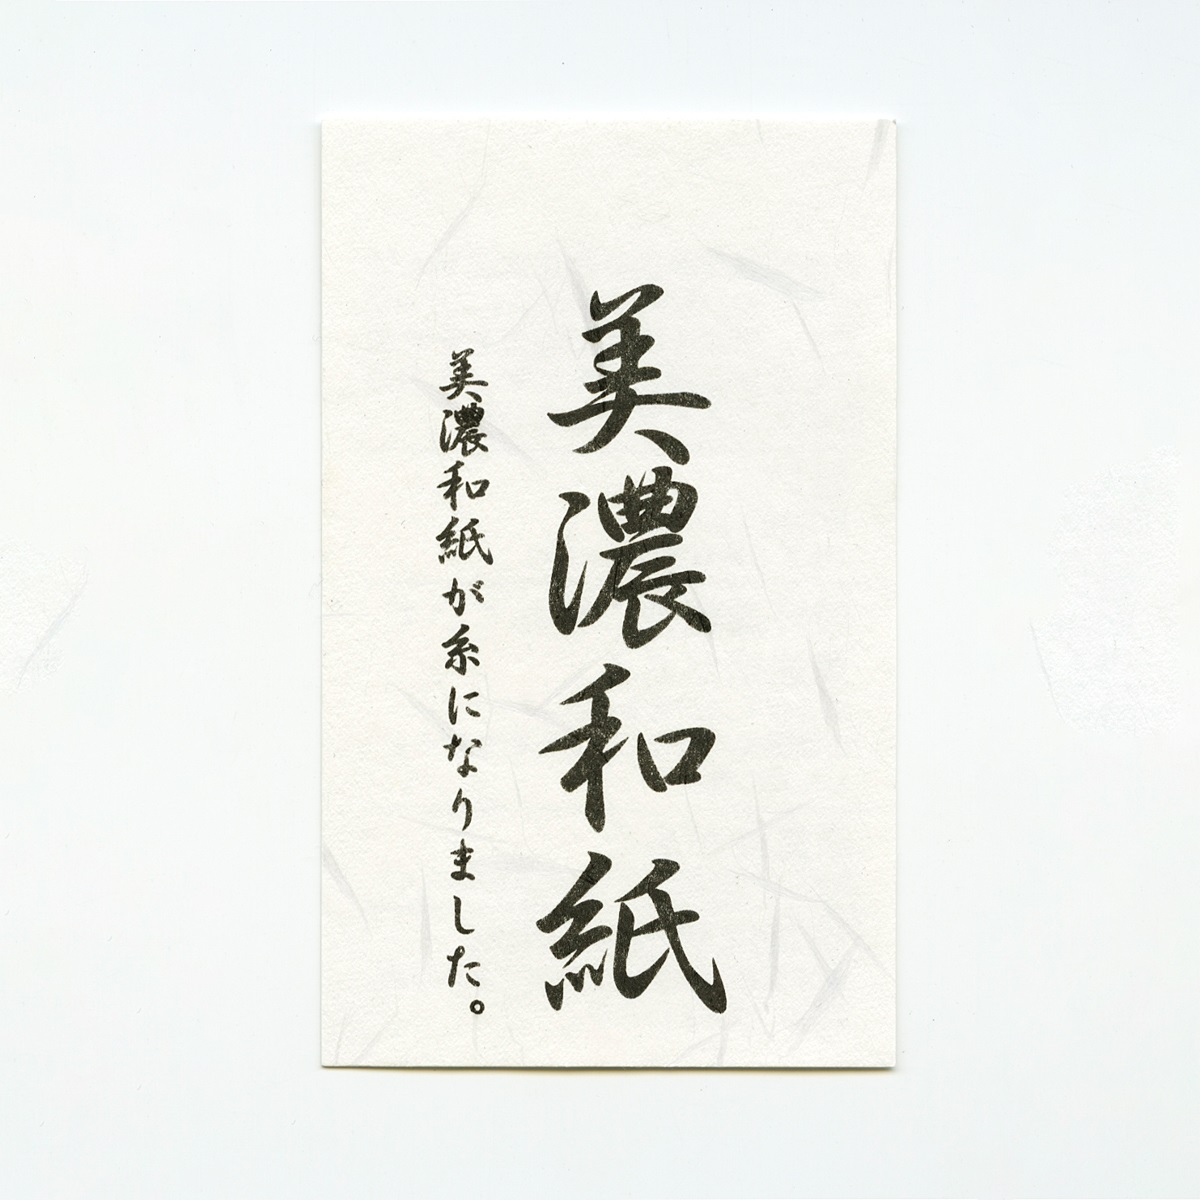 美濃和紙
美濃和紙が糸になりました。